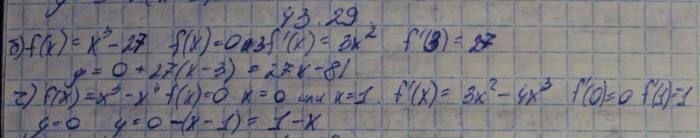 43.29
б) f(x) = x³ - 27 f(x) = 0 x=3 f'(x) = 3x² f'(3) = 27
y = 0 + 27(x - 3) = 27x - 81
г) f(x) = x³ - x⁴ f(x) = 0 x = 0 или x = 1. f'(x) = 3x² - 4x³ f'(0) = 0 f'(1) = 1
y = 0 y = 0 - (x - 1) = 1 - x